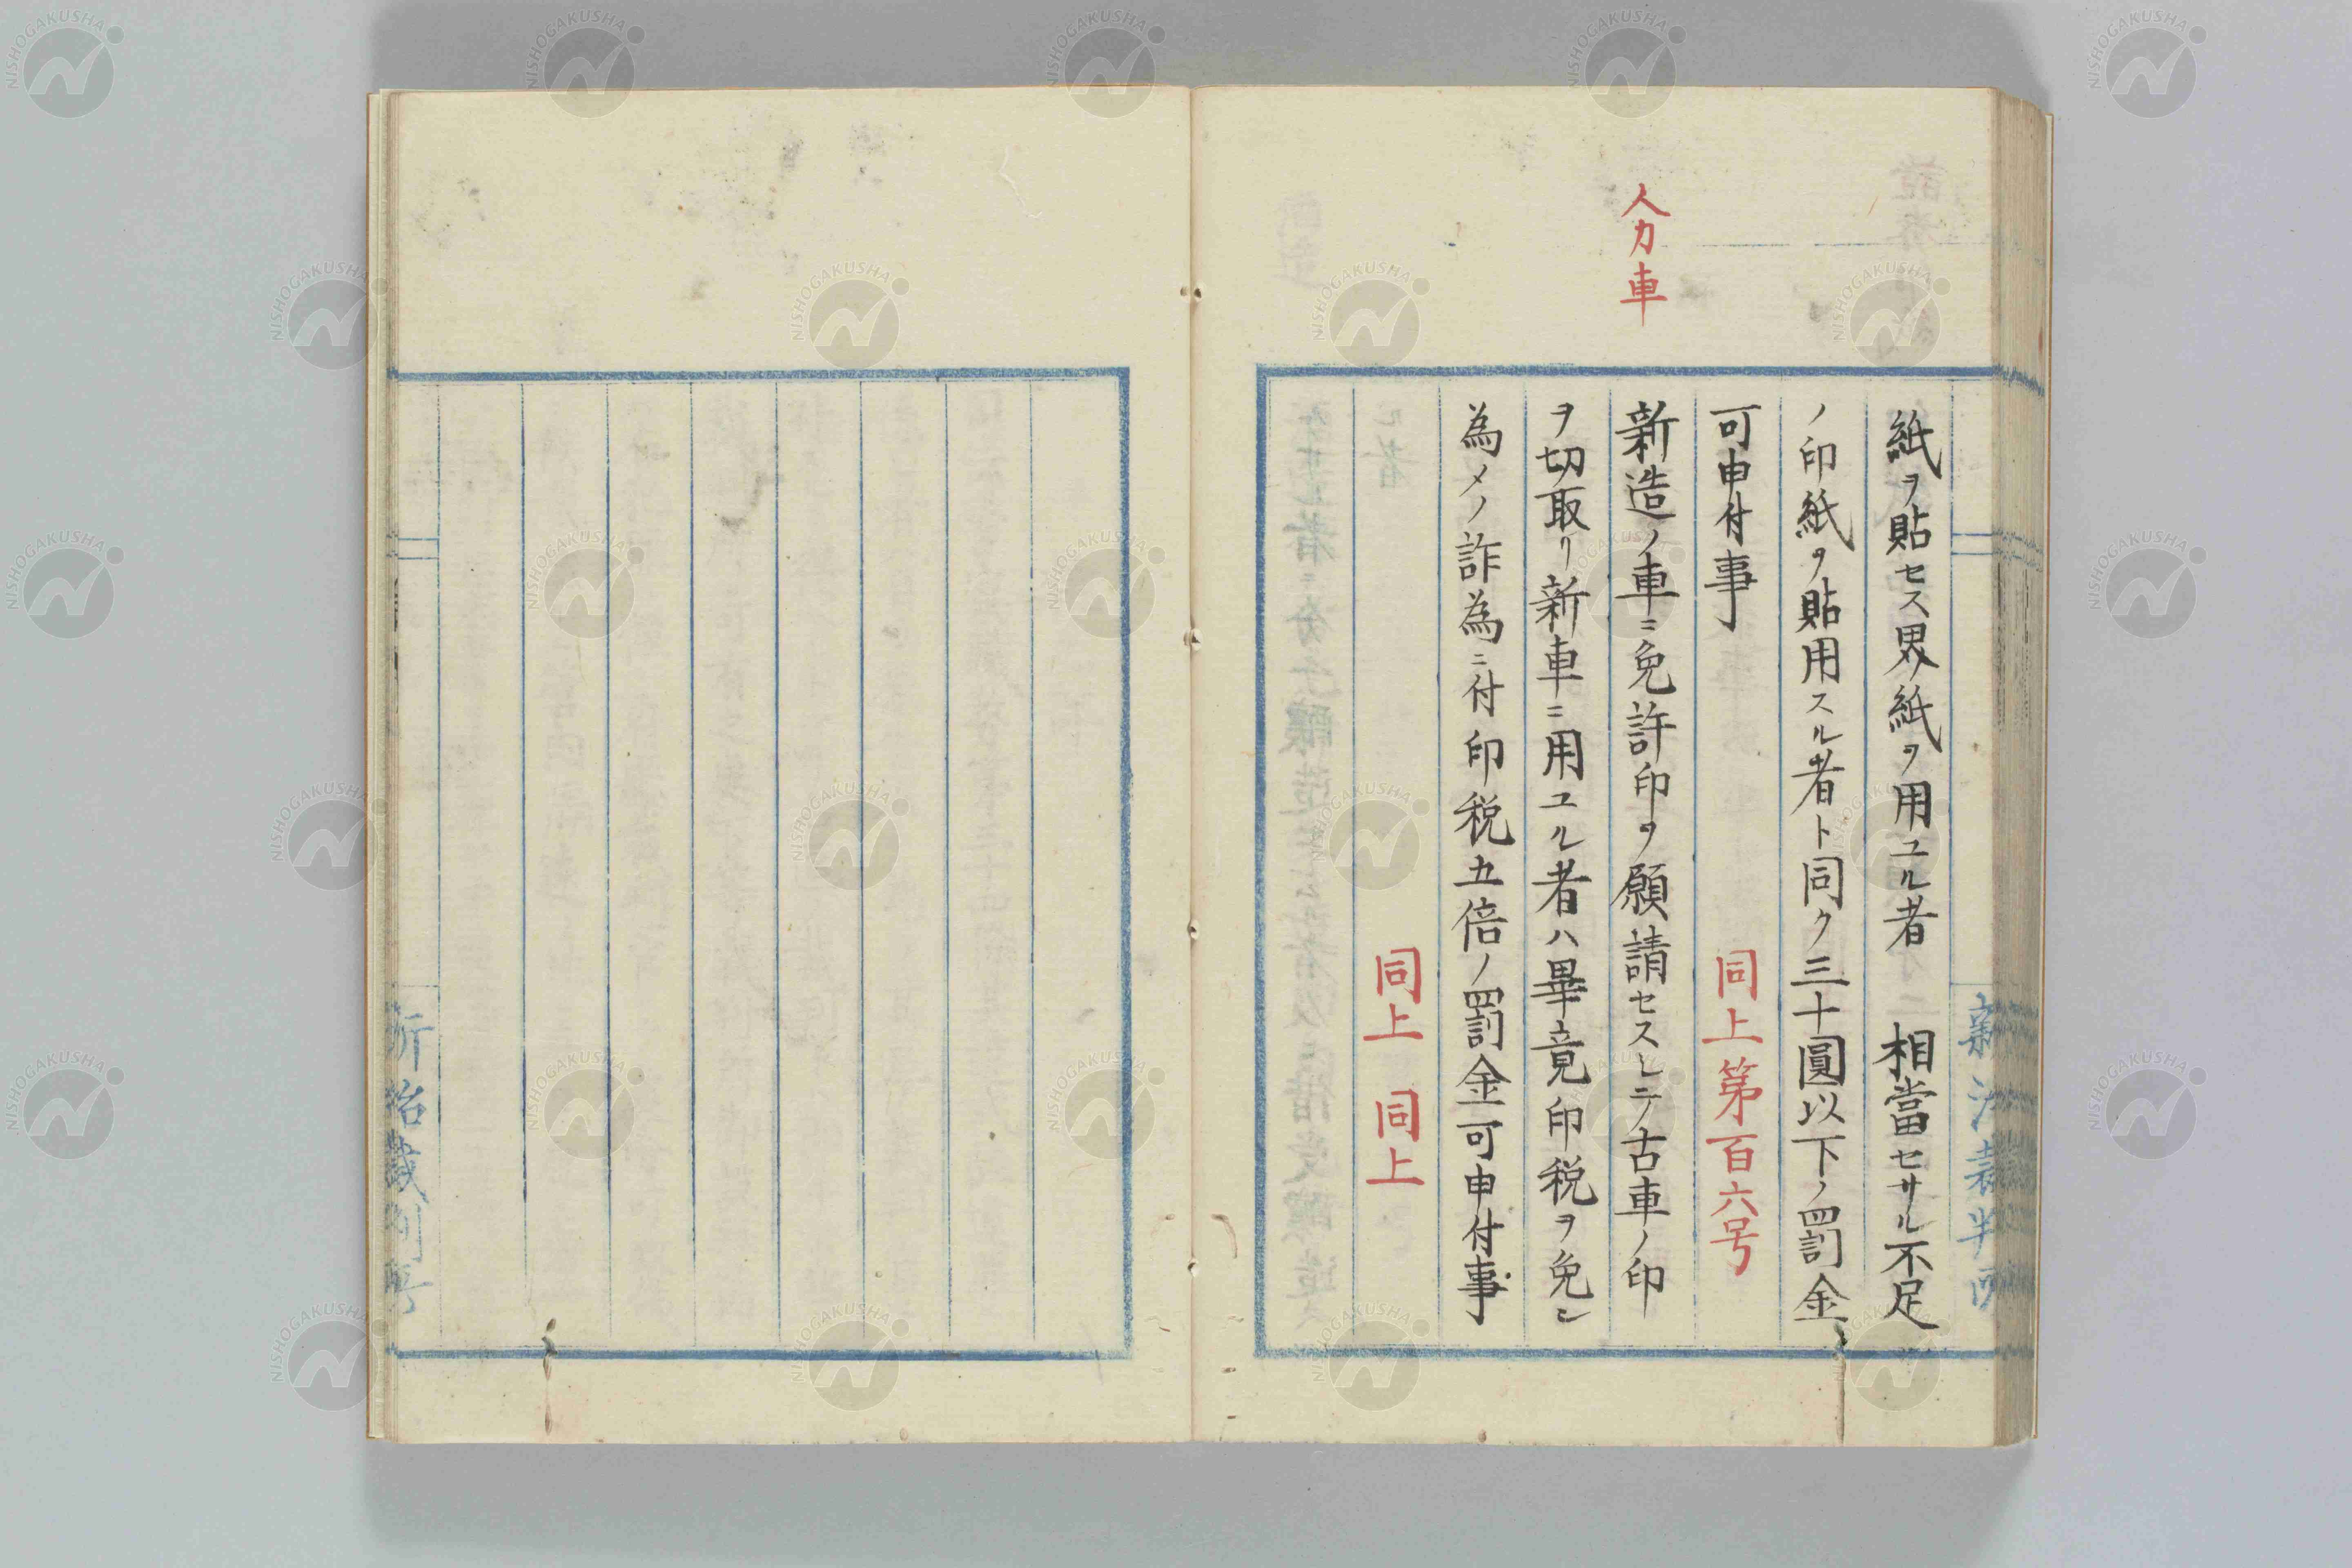 紙ヲ貼セス界紙ヲ用ユル者 相當セサル不足
ノ印紙ヲ貼用スル者ト同ク三十圓以下ノ罰金
可申付事 同上第百六号
人力車
新造ノ車ニ免許印ヲ願請セスシテ古車ノ印
ヲ切取リ新車ニ用ユル者ハ畢竟印税ヲ免レ
為メノ詐為ニ付印税五倍ノ罰金可申付事
同上 同上
NISHOGAKUSHA